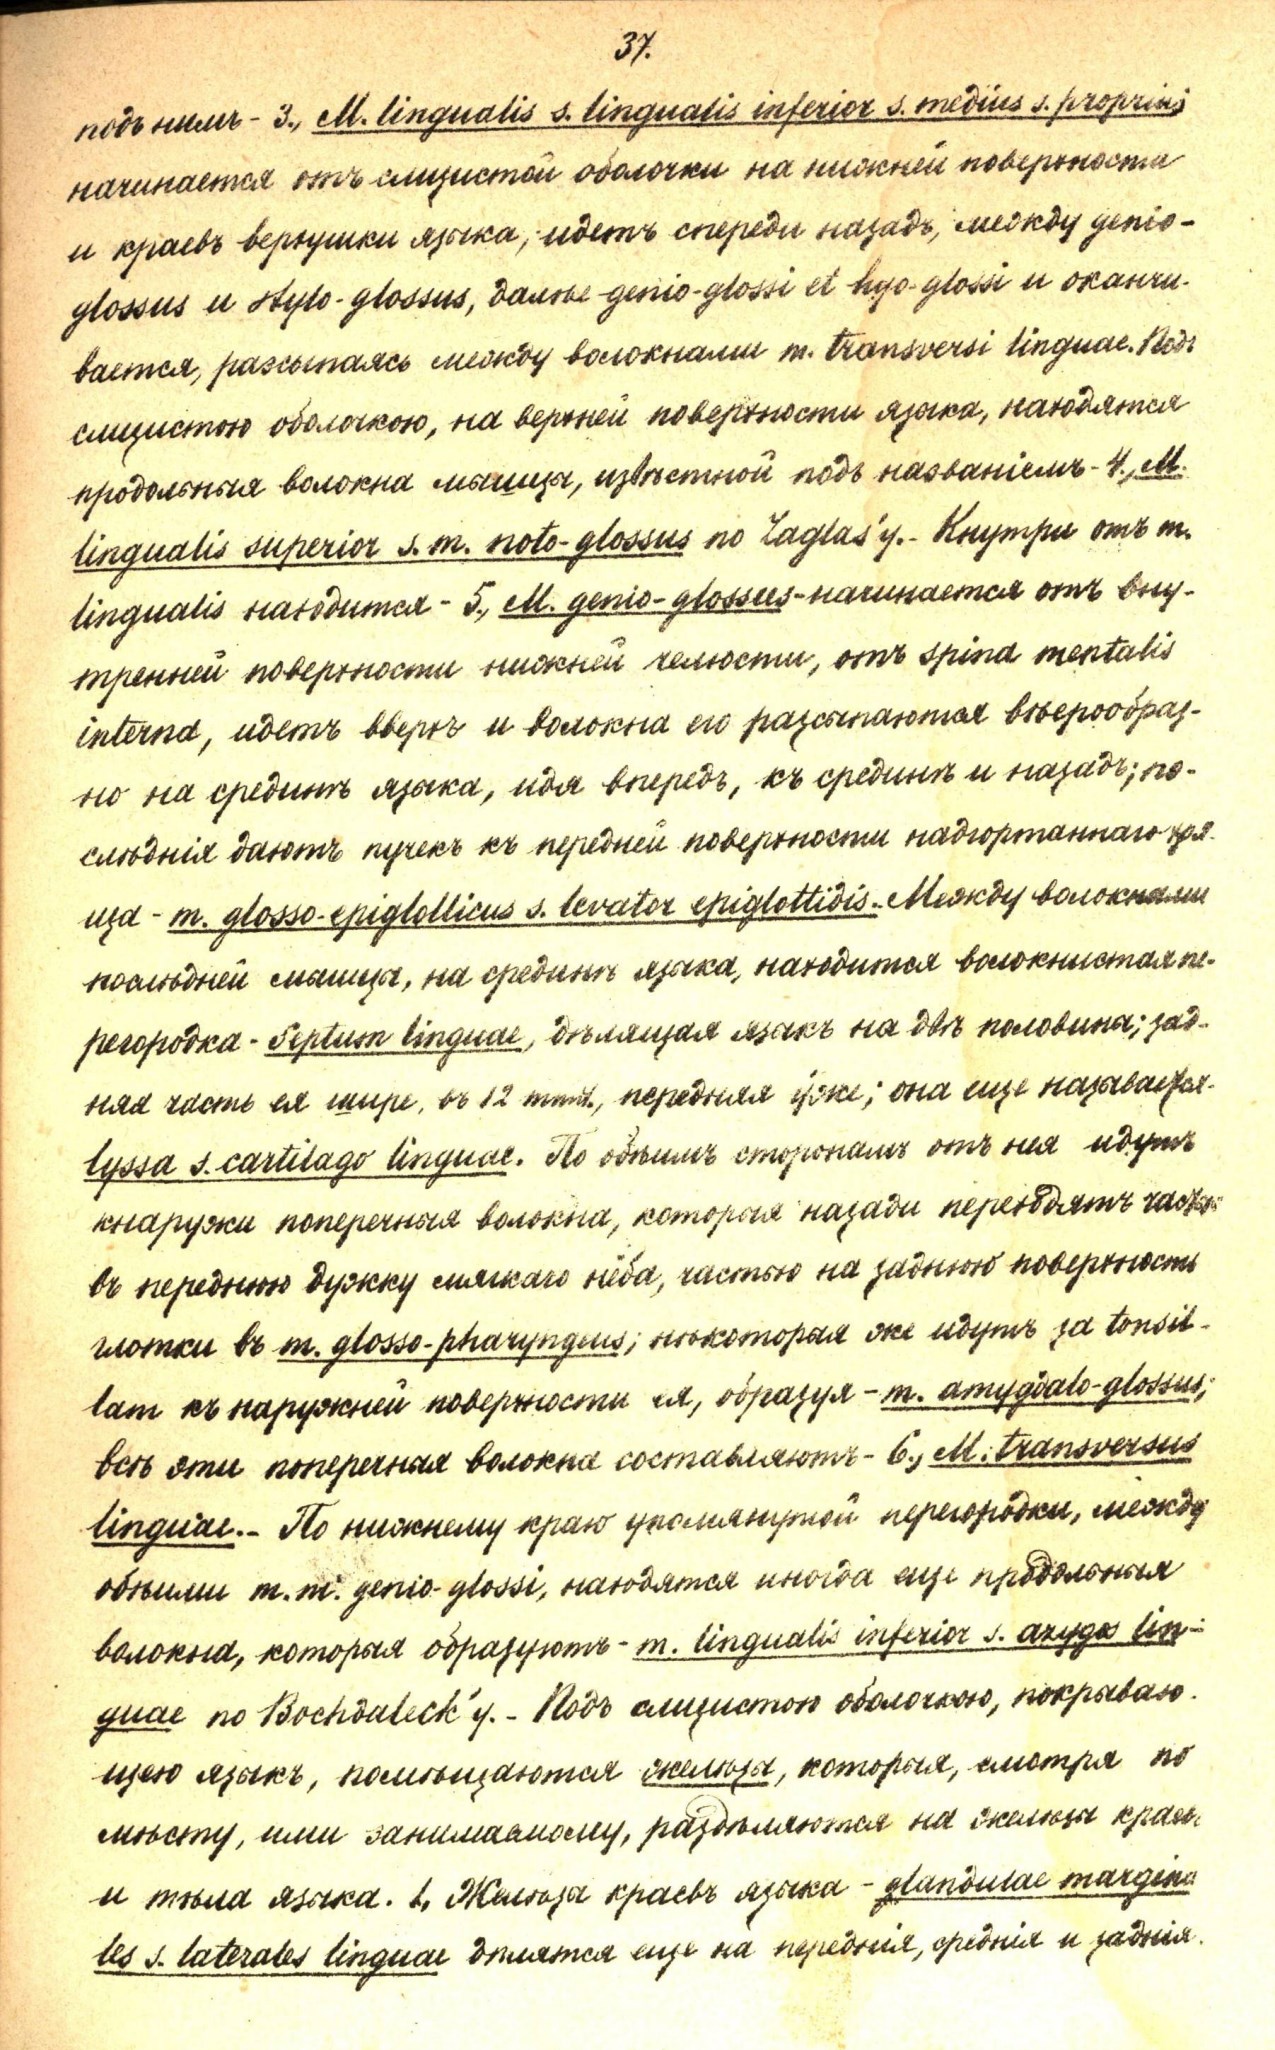 37.
подъ нимъ - 3., M. lingualis s. lingualis inferior s. medius s. proprius
начинается отъ слизистой оболочки на нижней поверхности
и краевъ верхушки языка, идетъ спереди назадъ, между genio-
glossus и stylo-glossus, далѣе genio-glossi et hyo-glossi и оканчи-
вается, разсыпаясь между волокнами m. transversi linguae. Подъ
слизистою оболочкою, на верхней поверхности языка, находятся
продольныя волокна мышцы, извѣстной подъ названіемъ - 4., M.
lingualis superior s. m. noto-glossus по Zaglas'у. - Кнутри отъ m.
lingualis находится - 5., M. genio-glossus - начинается отъ вну-
тренней поверхности нижней челюсти, отъ spina mentalis
interna, идетъ вверхъ и волокна его разсыпаются вѣерообраз-
но на срединѣ языка, идя впередъ, къ срединѣ и назадъ; по-
слѣднія даютъ пучекъ къ передней поверхности надгортаннаго хря-
ща - m. glosso-epiglotticus s. levator epiglottidis. - Между волокнами
послѣдней мышцы, на срединѣ языка, находится волокнистая пе-
регородка - Septum linguae, дѣлящая языкъ на двѣ половины; зад-
няя часть ея шире, въ 12 mmt., передняя у́же; она еще называется -
lyssa s. cartilago linguae. По обѣимъ сторонамъ отъ нея идутъ
кнаружи поперечныя волокна, которыя назади переходятъ частью
въ переднюю дужку мягкаго нёба, частью на заднюю поверхность
глотки въ m. glosso-pharyngeus; нѣкоторыя же идутъ за tonsil-
lam къ наружней поверхности ея, образуя - m. amygdalo-glossus;
всѣ эти поперечныя волокна составляютъ - 6., M. transversus
linguae. - По нижнему краю упомянутой перегородки, между
обѣими m. m. genio-glossi, находятся иногда еще продольныя
волокна, которыя образуютъ - m. lingualis inferior s. azygos lin-
guae по Bochdaleck'у. - Подъ слизистою оболочкою, покрываю-
щею языкъ, помѣщаются железы, которыя, смотря по
мѣсту, ими занимаемому, раздѣляются на железы краевъ
и тѣла языка. 1, Железы краевъ языка - glandulae margina
les s. laterales linguae дѣлятся еще на переднія, среднія и заднія.